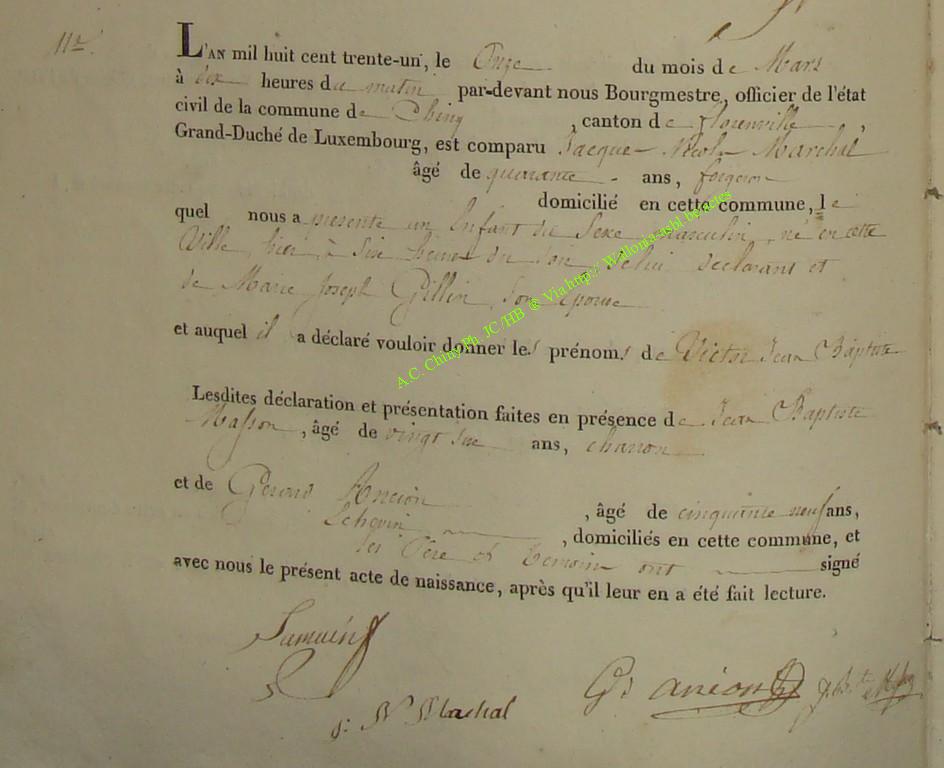 11e
L'AN mil huit cent trente-un, le Onze du mois de Mars
à dix heures du matin par-devant nous Bourgmestre, officier de l'état
civil de la commune de Chiny, canton de florenville,
Grand-Duché de Luxembourg, est comparu Jacque Nicolas Marchal
âgé de quarante ans, forgeron
domicilié en cette commune, le
quel nous a présenté un Enfant du Sexe masculin, né en cette
Ville, hier, à Six heures du Soir, de lui déclarant et
de Marie Joseph Gillin, Son épouse
et auquel il a déclaré vouloir donner les prénoms de Victor Jean Baptiste
Lesdites déclaration et présentation faites en présence de Jean Baptiste
Masson, âgé de vingt six ans, charron
et de Gérard Ancion, âgé de cinquante neuf ans,
Echevin, domiciliés en cette commune, et
les Père et temoins ont signé
avec nous le présent acte de naissance, après qu'il leur en a été fait lecture.
J: N Marchal
Gd ancion
A.C. Chiny Ph. JC/HB ® Via http:// Wallonia-asbl.be/actes